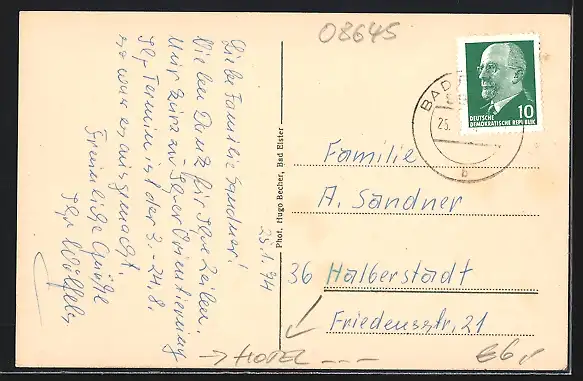 08645
Liebe Familie Sandner!
23.1.74
Vielen Dank für Ihre Zeilen.
Nur kurz zu Ihrer Orientierung
Ihr Termin ist der 3.-24.8.
so war es ausgemacht.
Freundliche Grüße
Ihr
Phot. Hugo Becher, Bad Elster
BAD
25.
b
DEUTSCHE
DEMOKRATISCHE REPUBLIK
10
Familie
A. Sandner
36 Halberstadt
Friedensstr, 21
→ HOTEL ---